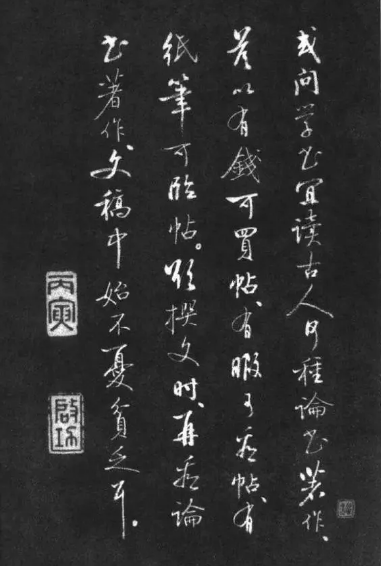 或问学书宜读古人何种論书著作、
答以有錢可買帖、有暇可看帖、有
纸筆可临帖。欲撰文时、再看論
书著作、文稿中始不憂貧乏耳。
丙寅
啟功